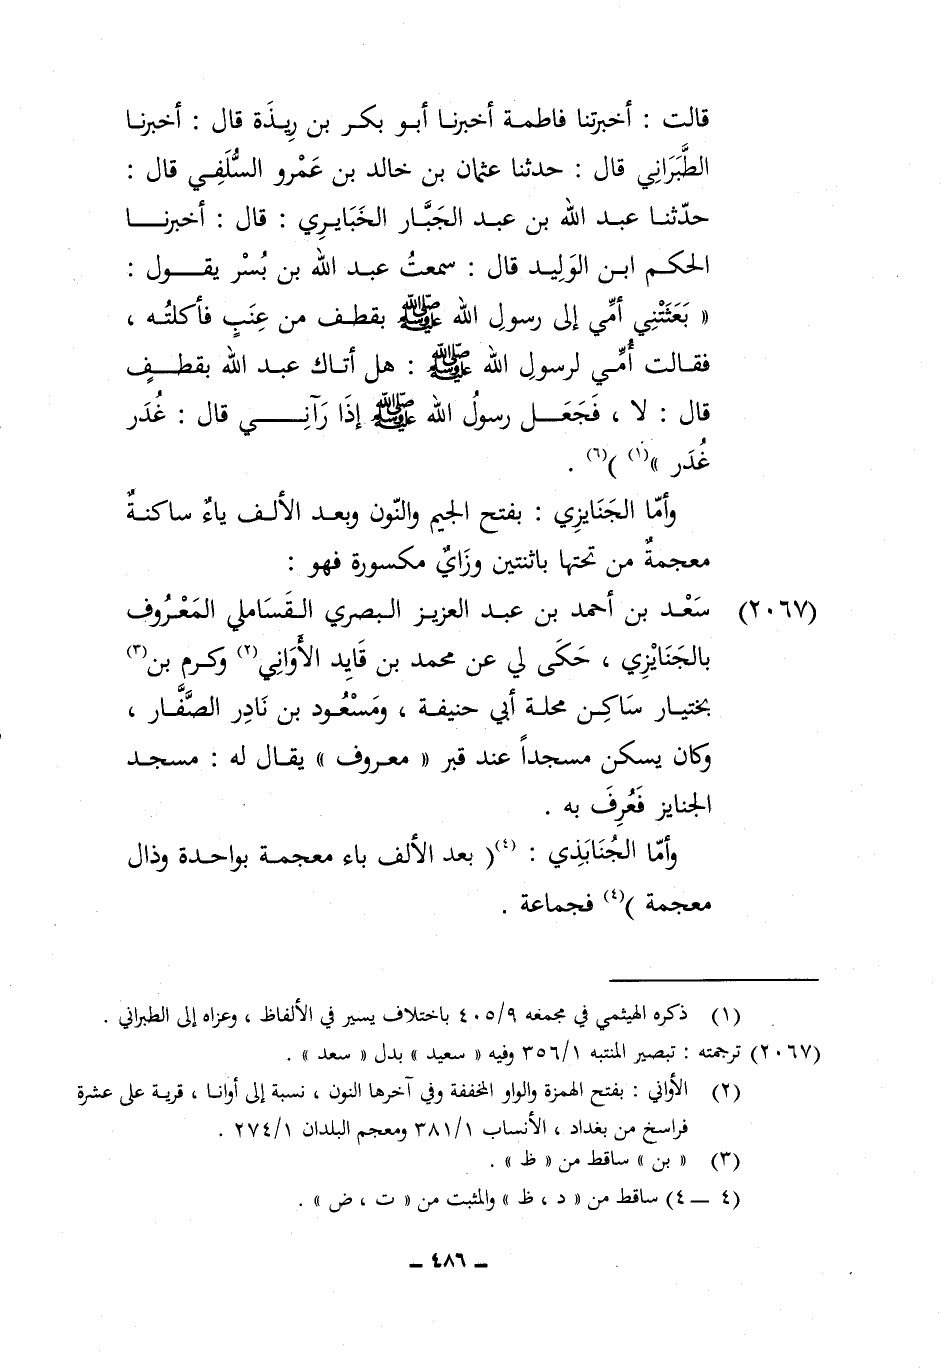 قالت : أخبرتنا فاطمة أخبرنا أبو بكر بن رِيذَة قال : أخبرنا
الطَّبَرَانِي قال : حدثنا عثمان بن خالد بن عَمْرو السُّلَفِي قال :
حدّثنا عبد الله بن عبد الجَبَّار الخَبَايرِي : قال : أخبرنا
الحكم ابن الوَلِيد قال : سمعتُ عبد الله بن بُسْر يقول :
« بَعَثَتْنِي أمِّي إلى رسولِ الله ﷺ بقطف من عِنَبٍ فأكلتُه ،
فقالت أُمِّي لرسولِ الله ﷺ : هل أتاك عبد الله بقطفٍ
قال : لا ، فَجَعَل رسولُ الله ﷺ إذَا رَآنِي قال : غُدَر
غُدَر »(١) )(٦) .
وأمّا الجَنَايزِي : بفتح الجيم والنّون وبعد الألف ياءٌ ساكنةٌ
معجمةٌ من تحتها باثنتين وزَايٌ مكسورة فهو :
(٢٠٦٧) سَعْد بن أحمد بن عبد العزيز البصري القَسَاملي المَعْرُوف
بالجَنَايْزِي ، حَكَى لي عن محمد بن قَايِد الأَوَانِي(٢) وكرم بن(٣)
بختيار سَاكِن محلة أبي حنيفة ، ومَسْعُود بن نَادِر الصَّفَّار ،
وكان يسكن مسجداً عند قبر « معروف » يقال له : مسجد
الجنايز فَعُرِفَ به .
وأمّا الجُنَابَذِي : (٤)( بعد الألف باء معجمة بواحدة وذال
معجمة )(٤) فجماعة .
(١) ذكره الهيثمي في مجمعه ٤٠٥/٩ باختلاف يسير في الألفاظ ، وعزاه إلى الطبراني .
(٢٠٦٧) ترجمته : تبصير المنتبه ٣٥٦/١ وفيه « سعيد » بدل « سعد » .
(٢) الأواني : بفتح الهمزة والواو المخففة وفي آخرها النون ، نسبة إلى أوانا ، قرية على عشرة
فراسخ من بغداد ، الأنساب ٣٨١/١ ومعجم البلدان ٢٧٤/١ .
(٣) « بن » ساقط من « ظ » .
(٤ ــ ٤) ساقط من « د ، ظ » والمثبت من « ت ، ض » .
ــ ٤٨٦ ــ